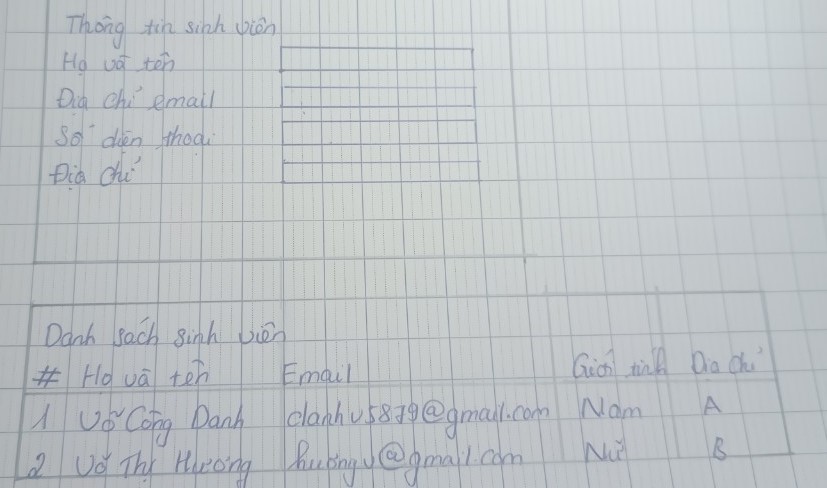 Thông tin sinh viên
Họ và tên
Địa chỉ email
Số điện thoại
Địa chỉ
Danh sách sinh viên
# Họ và tên Email Giới tính Địa chỉ
1 Võ Công Danh danhv5879@gmail.com Nam A
2 Võ Thị Hương huongv@gmail.com Nữ B